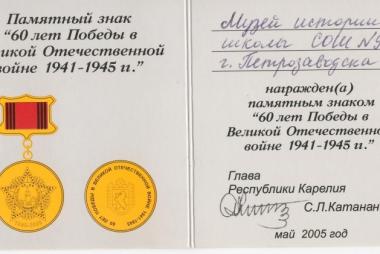 Памятный знак
"60 лет Победы в
еликой Отечественной
войне 1941-1945 и."
60 ЛЕТ ПОБЕДЫ В ВЕЛИКОЙ ОТЕЧЕСТВЕННОЙ ВОЙНЕ 1941-1945
Музей истории
школы СОШ №9
г. Петрозаводска
награжден(а)
памятным знаком
"60 лет Победы в
Великой Отечественно
войне 1941-1945 ии."
Глава
Республики Карелия
С.Л.Катанан
май 2005 год